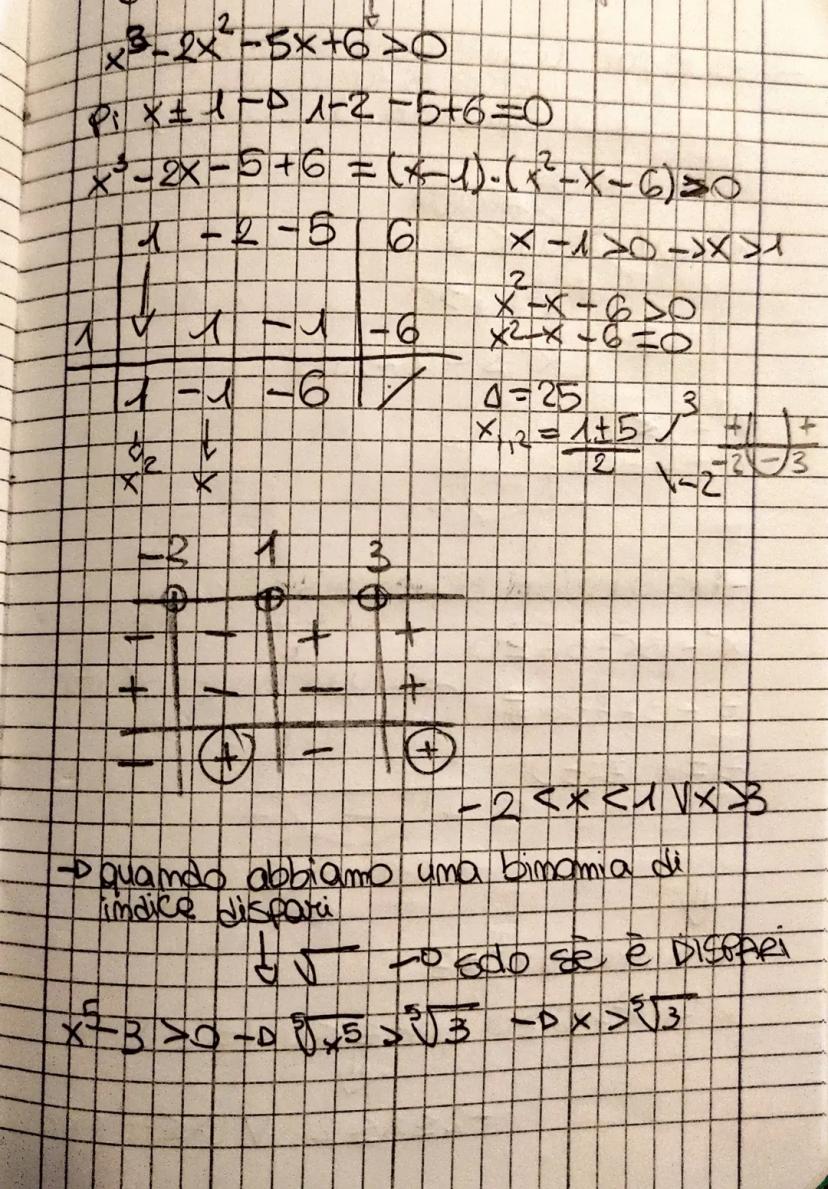 x³-2x²-5x+6>0
P: x±1 → 1-2-5+6=0
x³-2x-5+6=(x-1)·(x²-x-6)>0
1 -2 -5 6
1 1 -1 -6
1 -1 -6 /
x² x
x-1>0 →x>1
x²-x-6>0
x²-x-6=0
Δ=25
x₁,₂= 1±5 / 2 3
-2
+ +
-2 - 3
-2 1 3
- - + +
+ - - +
- + - +
-2<x<1 ∨ x>3
→ quando abbiamo una binomia di
indice dispari
↓ √ → solo sè è DISPARI
x⁵-3>0 → ⁵√x⁵ > ⁵√3 → x>⁵√3